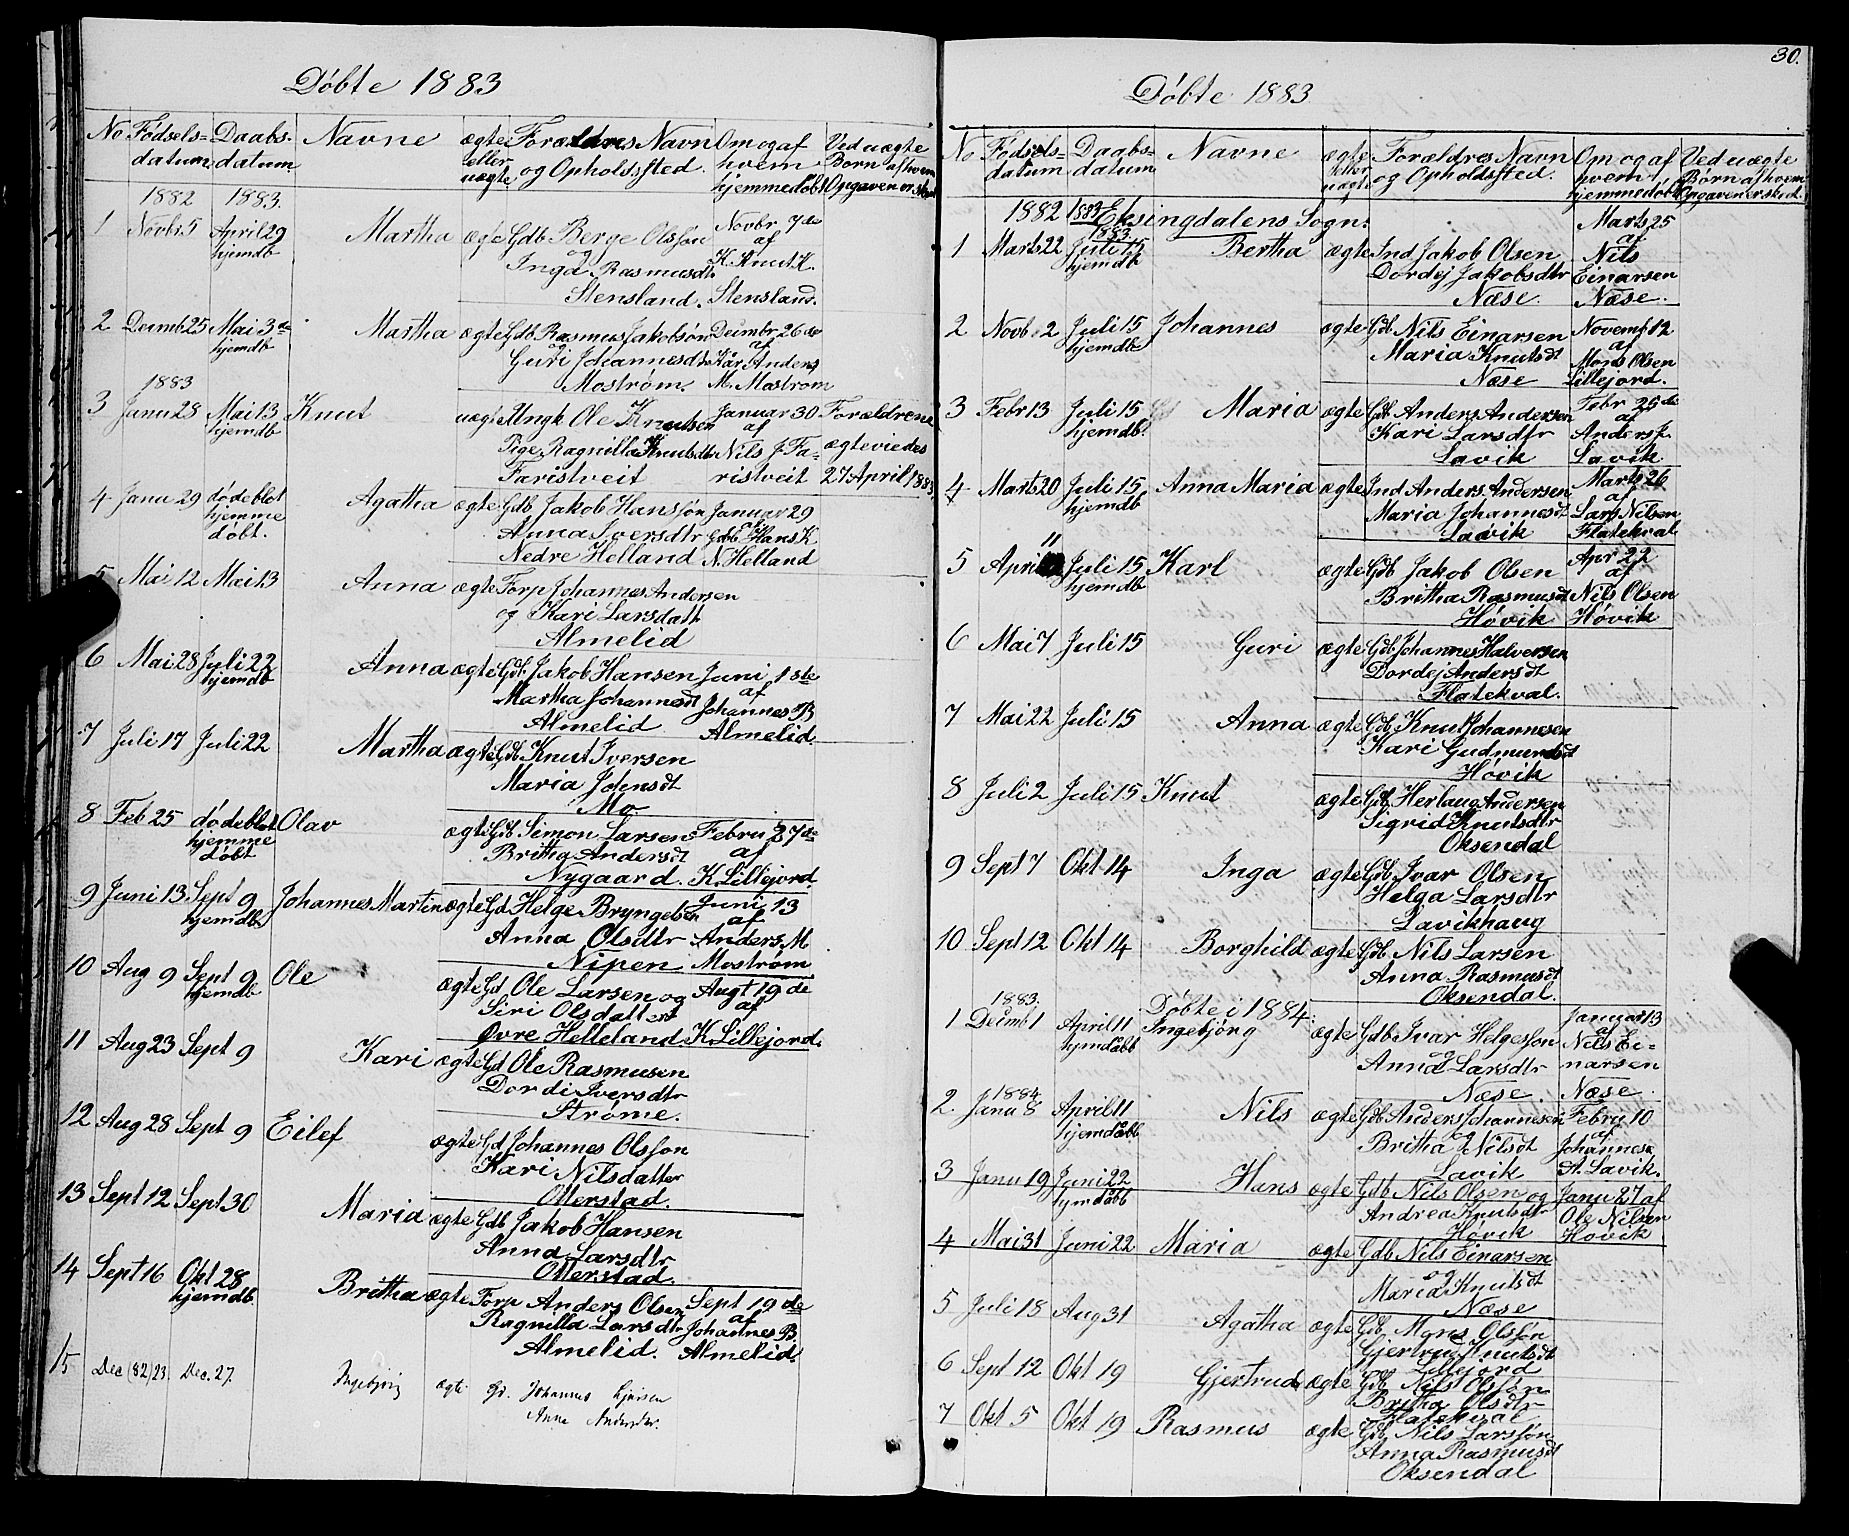 Döbte 1883
No Fødsels= Daabs- Navne ægte Forældres Navn Om og af Ved uægte
datum datum eller og Opholdssted. hvem Børn af hvem
uægte hjemmedøbt Opgaven er
1882 1883.
1 Novbr 5 April 29 Martha ægte Gdb Berge Olsson Novbr 7de
hjemdb og af
Inga Rasmusdtr K. Knut K.
Stensland. Stensland.
2 Decmb 25 Mai 3de Martha ægte Gdb Rasmus Jakobsön Decmbr 26de
hjemdb og af
Guri Johannesdtr Kår Anders
Moström. M. Mostrom
1883
3 Janu 28 Mai 13 Knut uægte Ungk Ole Knutsen Januar 30 Forældrene
hjemdb af
Pige Ragnilla Knutsdtr Nils J Fa- ægteviedes
Faristveit ristveit 27 April 1883.
4 Janu 29 dødeblot Agatha ægte Gdb Jakob Hanssön Januar 29
hjemme Anna Iversdtr Gdb Hans K
døbt. Nedre Helland N. Helland
5 Mai 12 Mai 13 Anna ægte Torp Johannes Andersen
og Kari Larsdatt
Almelid
6 Mai 28 Juli 22 Anna ægte Gdb Jakob Hansen Juni 1ste
hjemdb Martha Johannesdt af
Almelid Johannes B
Almelid.
7 Juli 17 Juli 22 Martha ægte Gdb Knut Iversen
Maria Johnsdt
Mo
8 Feb 25 dødeblot Olav ægte Gdb Simon Larsen Febru 27de
hjemme Britha Andersdt af
døbt Nygaard. K Lillejord.
9 Juni 13 Sept 9 Johannes Martin ægte Gd Helge Bryngelsen Juni 13
hjemdb. af
Anna Olsdtr Anders M
Nipen Moström
10 Aug 9 Sept 9 Ole ægte Gd Ole Larsen og Augt 19de
hjemdb Siri Olsdatter af
Øvre Helleland K Lillejord.
11 Aug 23 Sept 9 Kari ægte Gd Ole Rasmusen
Dordi Iversdtr
Ströme.
12 Aug 28 Sept 9 Eilef ægte Gd Johannes Olsson
Kari Nilsdatter
Otterstad.
13 Sept 12 Sept 30 Maria ægte Gdb Jakob Hansen
Anna Larsdtr
Otterstad.
14 Sept 16 Okt 28 Britha ægte Torp Anders Olsen Sept 19de
hjemdb. Ragnilla Larsdtr af
Johannes B.
Almelid. Almelid.
15 Dec (82) 23. Dec. 27. Ingebjörg ægte Gd. Johannes
Anna Andersdtr.
30.
Döbte 1883
No Fødsels= Daabs= Navne ægte Forældres Navn Om og af Ved uægte
datum datum eller og Opholdssted. hvem Børn af hvem
uægte hjemmedøbt Opgaven er sked.
1882 1883 Eksingdalens Sogn. Marts 25
1883. af
1 Marts 22 Juli 15 Bertha ægte Ind Jakob Olsen Nils
hjemdb Dordej Jakobsdtr Einarsen
Næse. Næse.
2 Novb 2 Juli 15 Johannes ægte Gdb Nils Einarsen Novemb 12
hjemdb Maria Knutsdt af
Næse Mons Olsen
Lillejord.
3 Febr 13 Juli 15 Maria ægte Gdb Anders Andersen Febr 25de
hjemdb. Kari Larsdtr af
Anders J.
Lavik Lavik
4 Marts 20 Juli 15 Anna Maria ægte Ind Anders Andersen Marts 26
hjemdb Maria Johannesdt af
Lars Nilsen
Lavik Flatekval
5 April 11 Juli 15 Karl ægte Gdb Jakob Olsen Apr 22
hjemdb af
Britha Rasmusdt Nils Olsen
Hövik Hövik
6 Mai 7 Juli 15 Guri ægte Gdb Johannes Halversen
Dordej Andersdt
Flatekval.
7 Mai 22 Juli 15 Anna ægte Gdb Knut Johannesen
Kari Gudmundsdt
Hövik
8 Juli 2 Juli 15 Knut ægte Gdb Herlaug Andersen
Sigrid Knutsdtr
Oksendal
9 Sept 7 Okt 14 Inga ægte Gdb Ivar Olsen
Helga Larsdtr
Lavikhaug
10 Sept 12 Okt 14 Borghild ægte Gdb Nils Larsen
Anna Rasmusdt
Oksendal.
1883. Döbte i 1884.
1 Decmb 1 April 11 Ingebjörg ægte Gdb Ivar Helgesson Januar 13
hjemdöbb og af
Anna Larsdtr Nils Ei-
narsen
Næse. Næse.
1884
2. Janu 8 April 11 Nils ægte Gdb Anders Johannesen Febru 10
hjemdöbb og af
Britha Nilsdt Johannes
Lavik A. Lavik.
3 Janu 19 Juni 22 Hans ægte Gdb Nils Olsen og Janu 27 af
hjemdöbb Andrea Knutsdtr Ole Nilsen
Hövik Hovik
4 Mai 31 Juni 22 Maria ægte Gdb Nils Einarsen
og
Maria Knutsdt
Næse
5 Juli 18 Aug 31 Agatha ægte Gdb Mons Olssön
Gjertrud Knutsdt
Lillejord
6 Sept 12 Okt 19 Gjertrud ægte Gdb Nils Olssön
Britha Olsdtr
Flatekval
7 Okt 5 Okt 19 Rasmus ægte Gdb Nils Larssön
Anna Rasmusdt
Oksendal